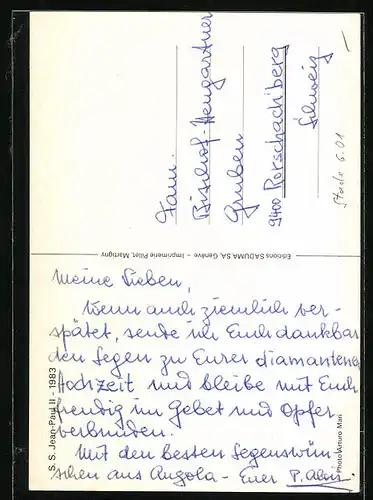 Meine Lieben,
Wenn auch ziemlich ver-
spätet, sende ich Euch dankbar
den Segen zu Eurer diamantenen
Hochzeit und bleibe mit Euch
freudig im Gebet und Opfer
verbunden.
Mit den besten Segenswün-
schen aus Angola - Euer P. Alois
Fam.
Bischof-Heugartner
Gruben
9400 Rorschacherberg
Schweiz
S. S. Jean-Paul II - 1983
Editions SADUMA SA, Genève – Imprimerie Pillet, Martigny
Photo Arturo Mari